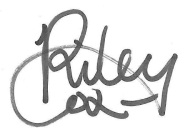 Riley
Cox